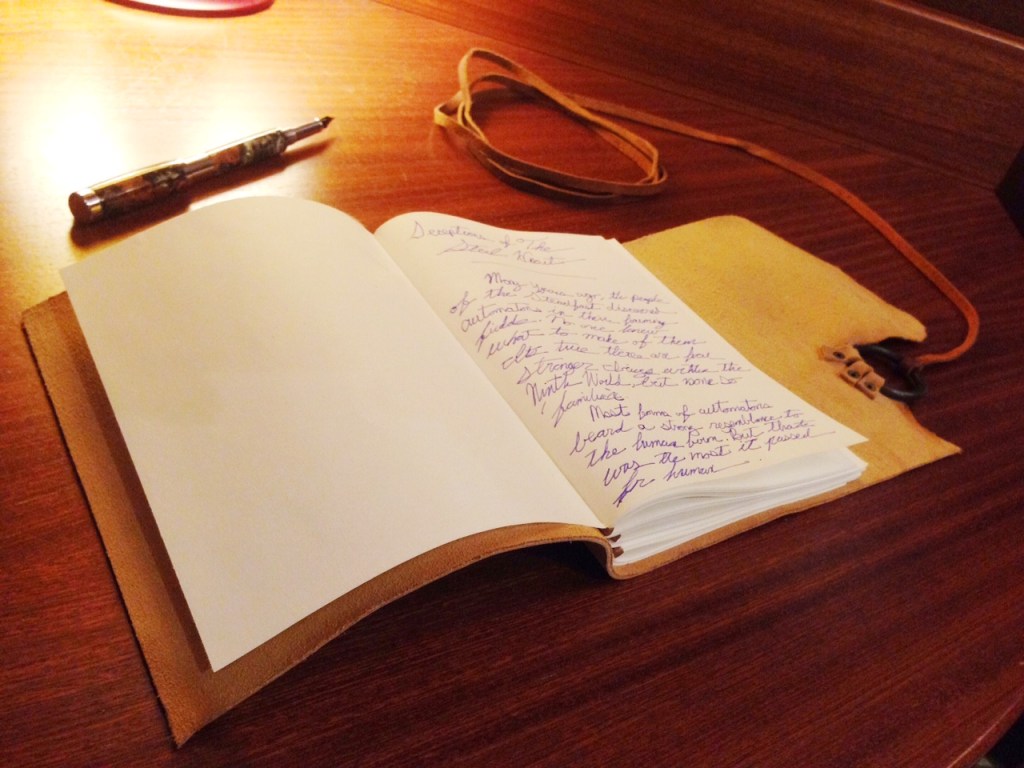 Deceptions of "The
Steel Heart
Many years ago, the people
of the Steadfast discovered
automatons in their farming
fields. No one knew
what to make of them
true there are far
stranger things within the
Ninth World, but none so
familiar.
Most forms of automatons
beard a strong resemblance to
the human form. But that
was the most it passed
for human.